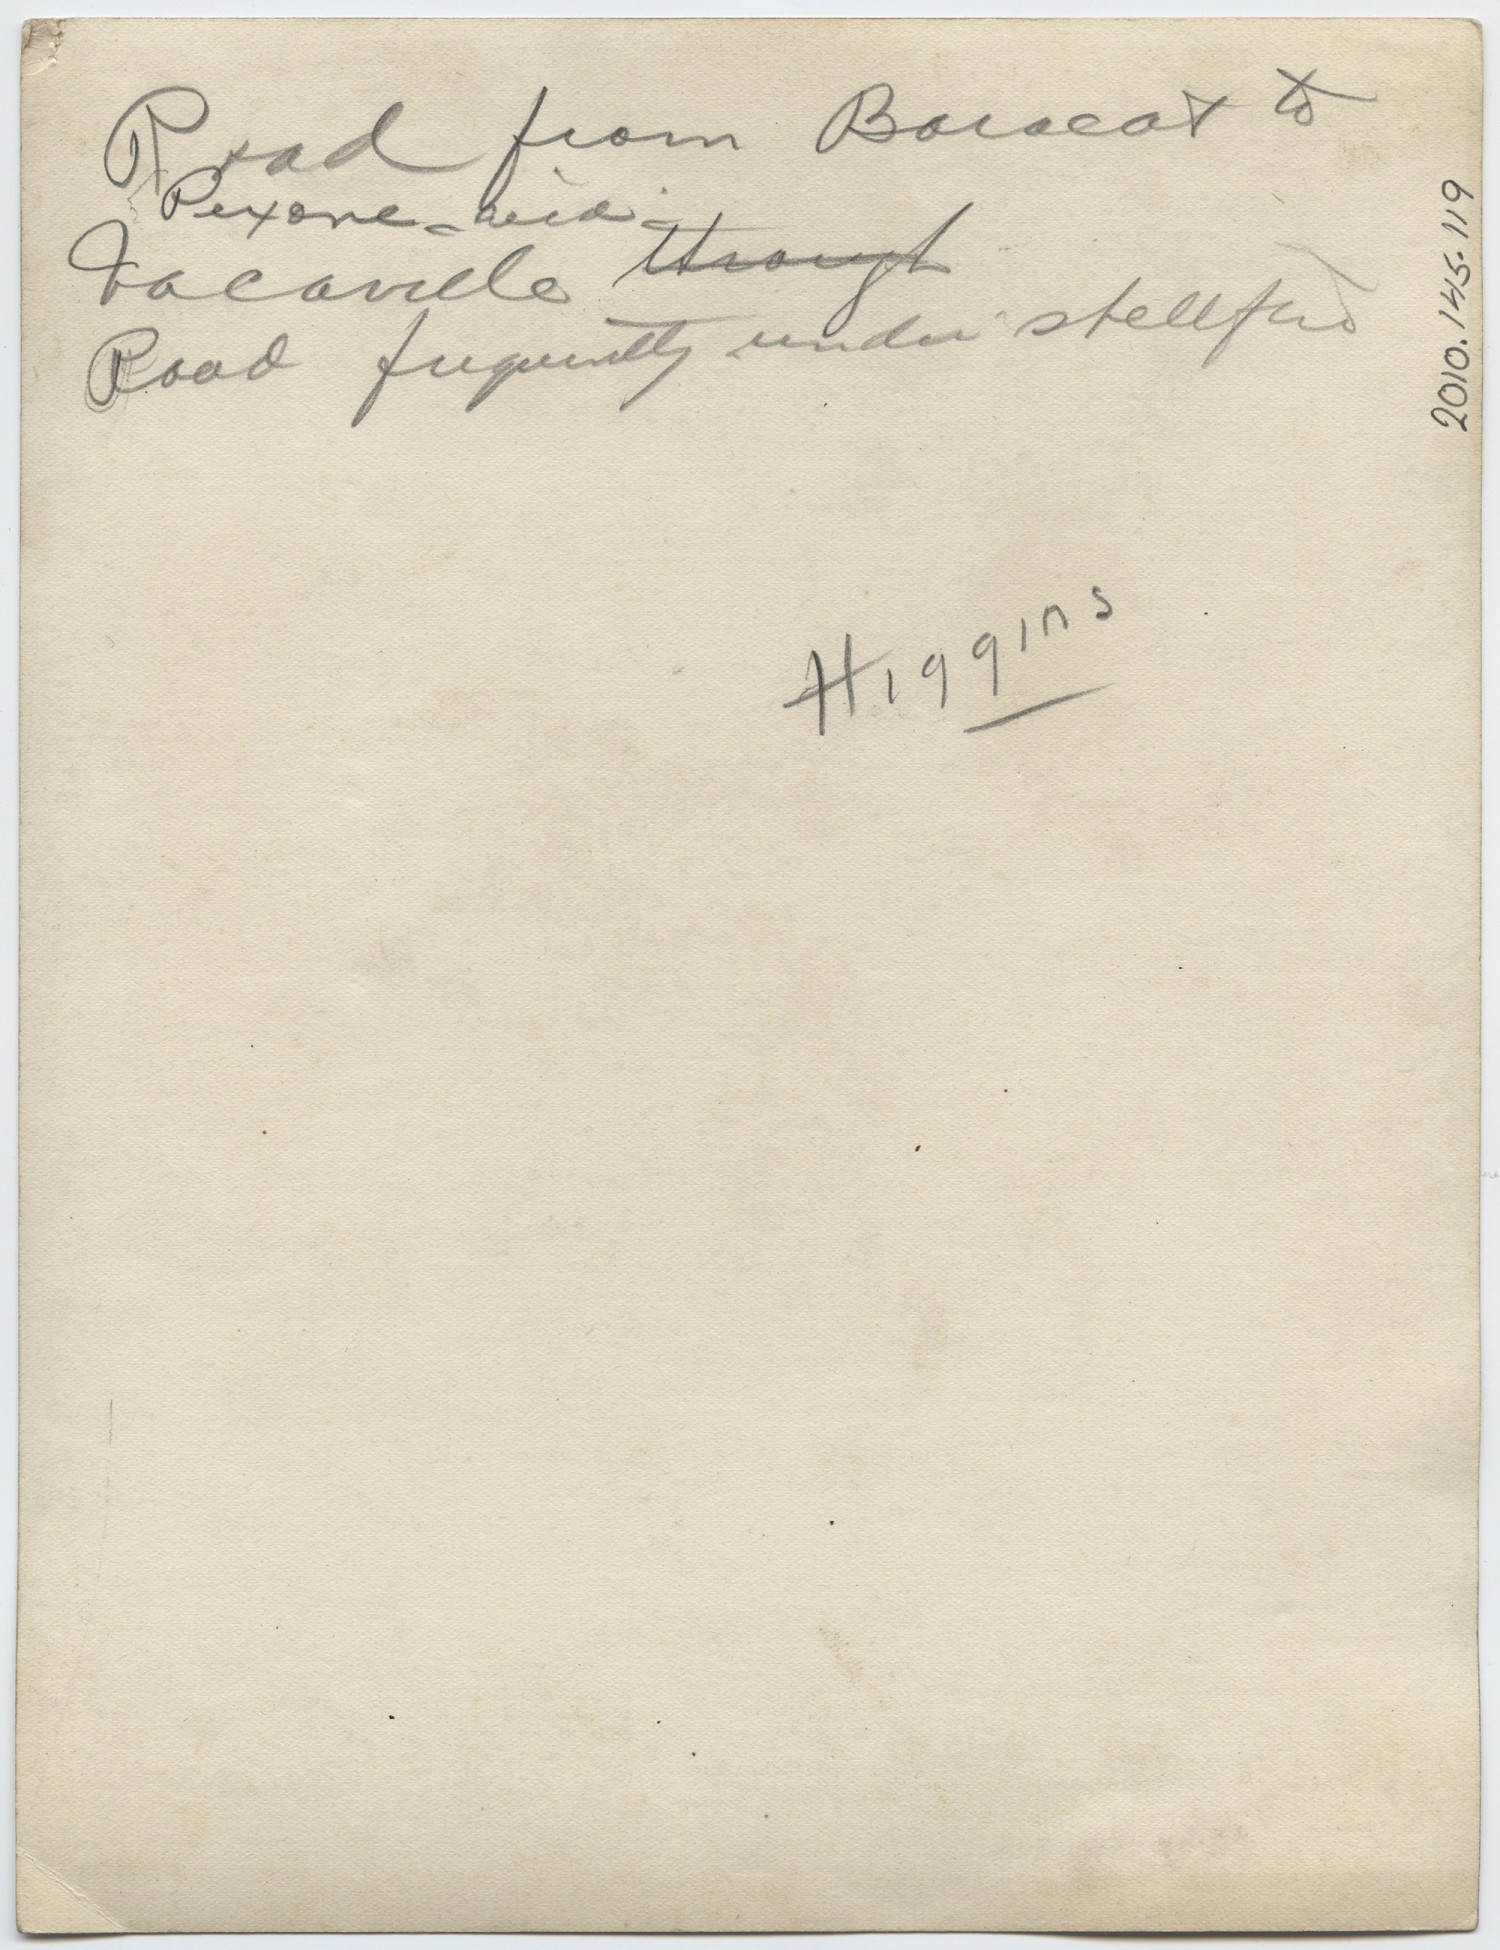 Road from Baracat to
Pexone - via -
Vacaville through
Road frequently under shellfire
Higgins
2010.145.119